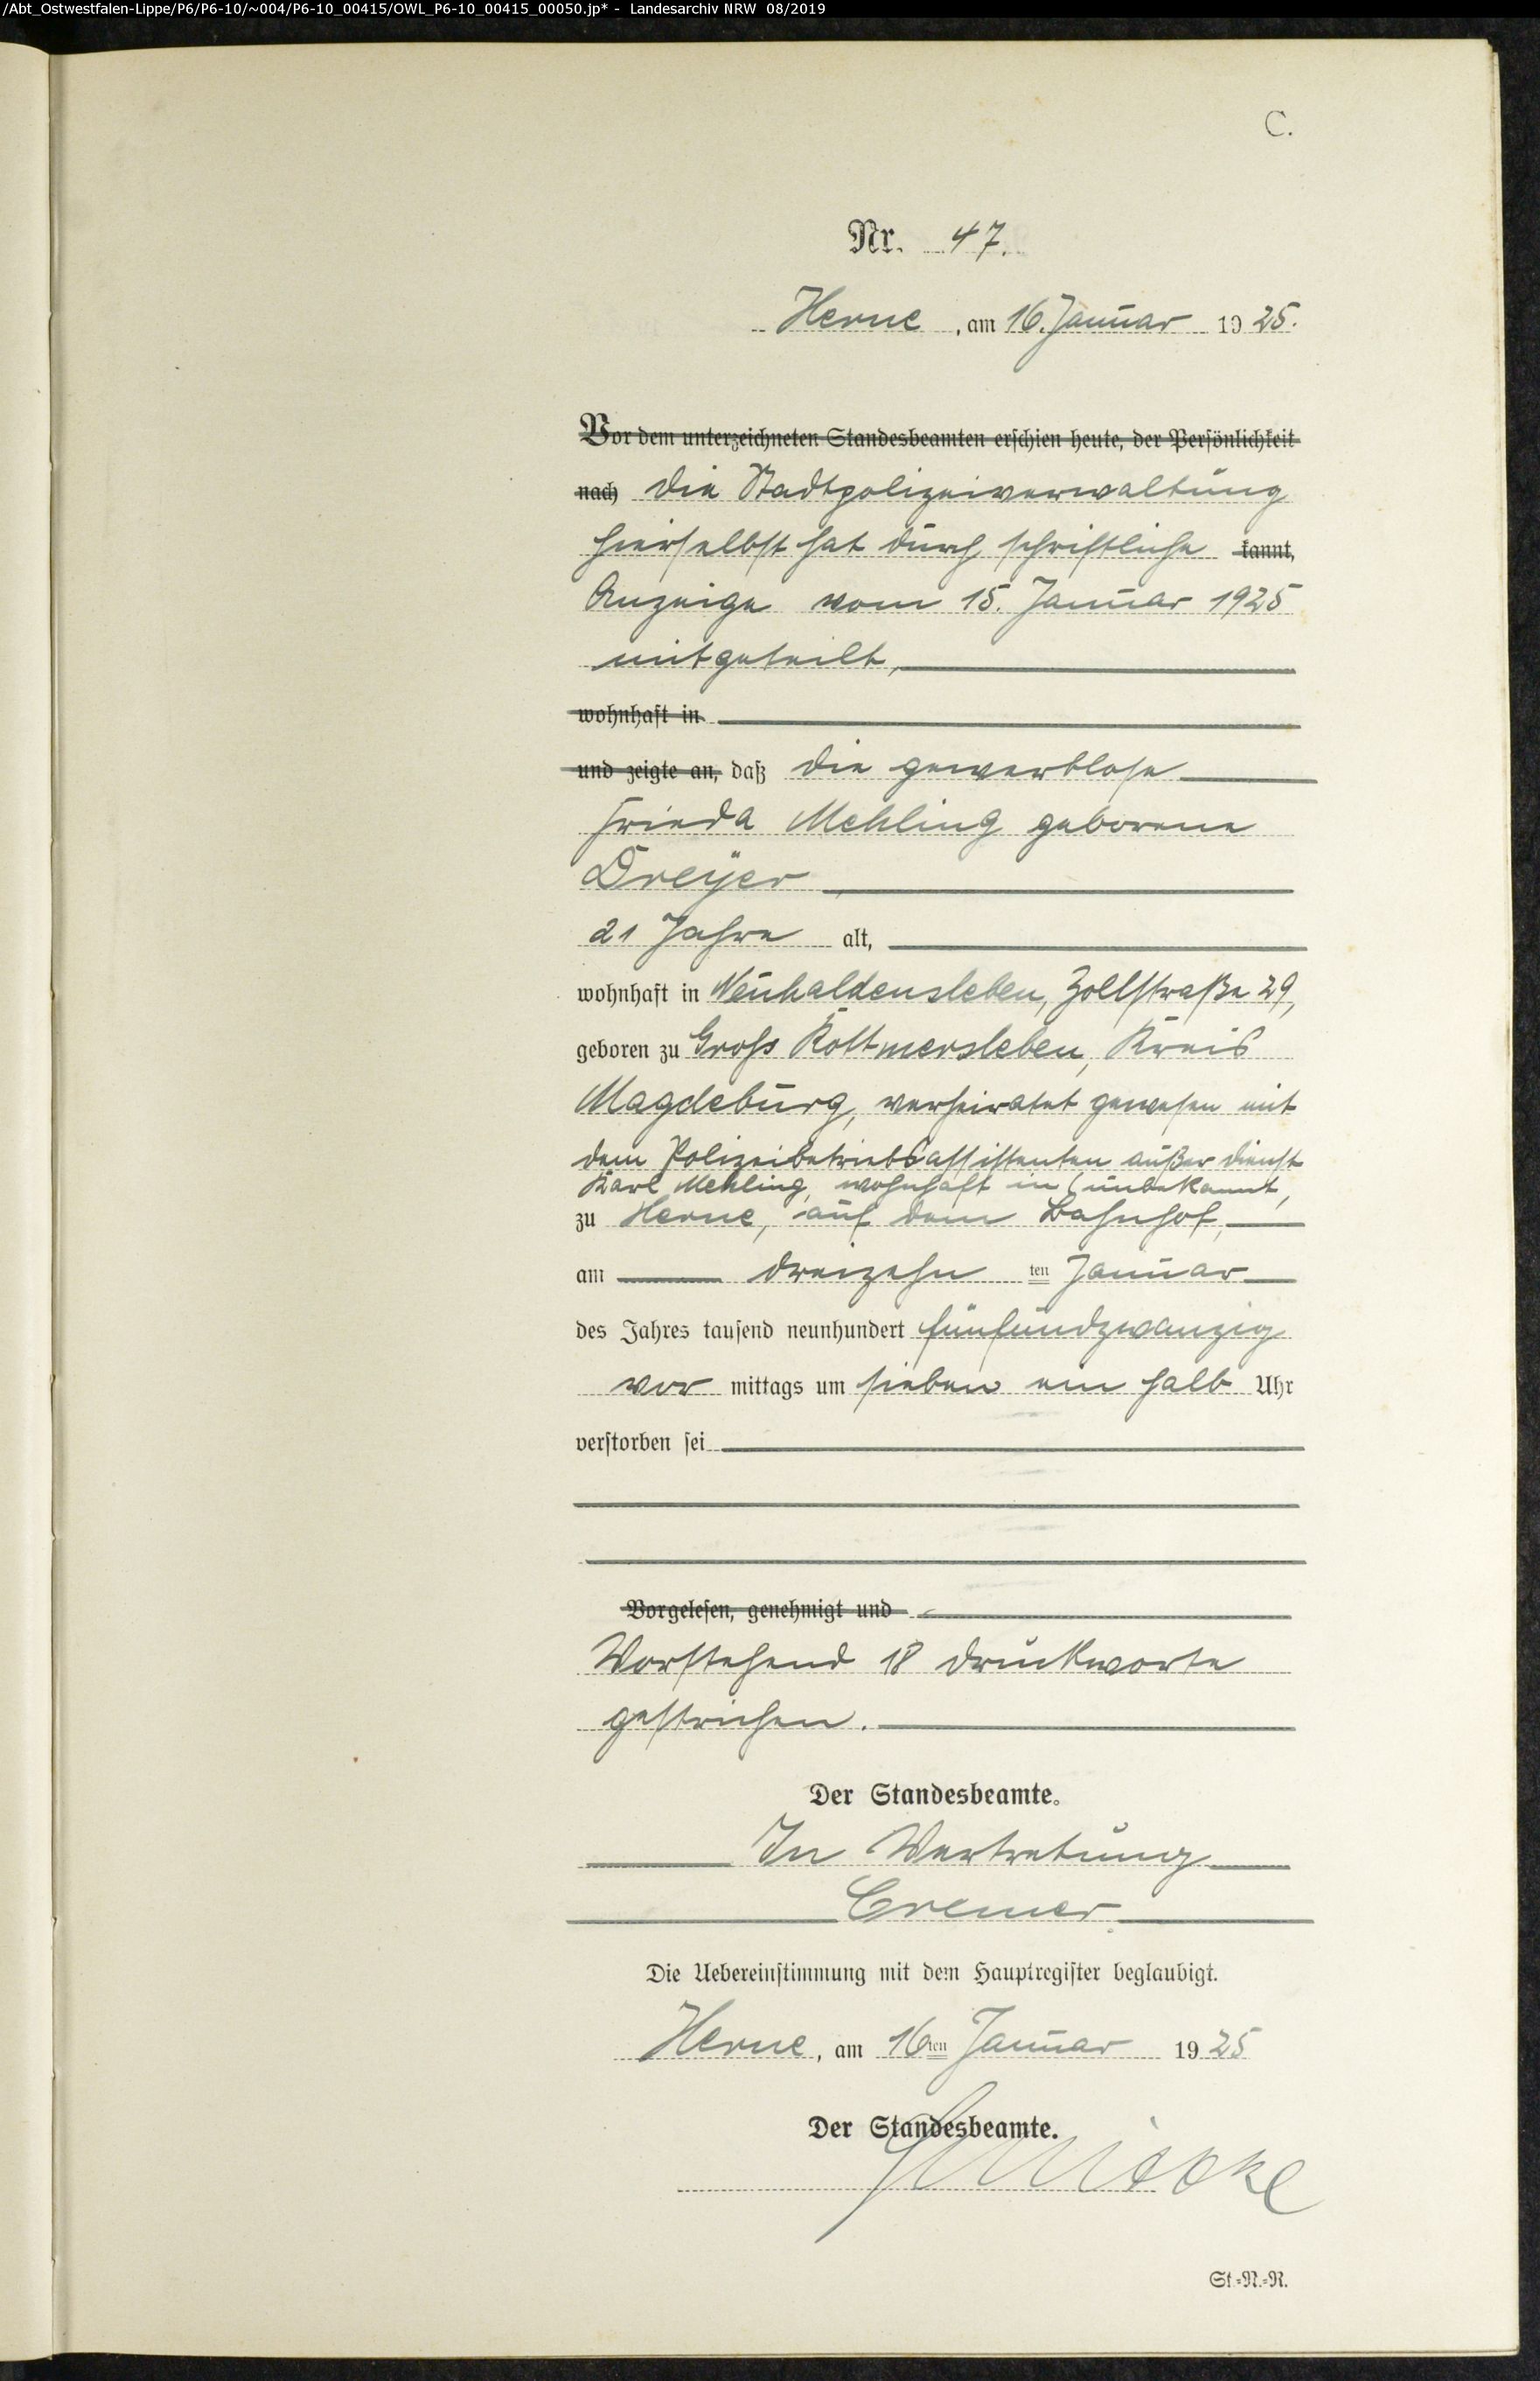 /Abt_Ostwestfalen-Lippe/P6/P6-10/~004/P6-10_00415/OWL_P6-10_00415_00050.jp* - Landesarchiv NRW 08/2019
C.
Nr. 47.
Herne, am 16. Januar 1925.
Vor dem unterzeichneten Standesbeamten erschien heute, der Persönlichkeit
nach die Stadtpolizeiverwaltung
hierselbst hat durch schriftliche kannt,
Anzeige vom 15. Januar 1925
mitgeteilt,
wohnhaft in
und zeigte an, daß die gewerblose
Frieda Mehling geborene
Dreyer
21 Jahre alt,
wohnhaft in Neuhaldensleben, Zollstraße 29,
geboren zu Groß Rottmersleben, Kreis
Magdeburg, verheiratet gewesen mit
dem Polizeibetriebsassistenten außer Dienst
Karl Mehling, wohnhaft in (unbekannt,
zu Herne, auf dem Bahnhof,
am dreizehn ten Januar
des Jahres tausend neunhundert fünfundzwanzig
vor mittags um sieben ein halb Uhr
verstorben sei
Vorgelesen, genehmigt und
Vorstehend 18 Druckworte
gestrichen.
Der Standesbeamte.
In Vertretung
Cremer
Die Uebereinstimmung mit dem Hauptregister beglaubigt.
Herne, am 16ten Januar 1925
Der Standesbeamte.
St.=N.=R.